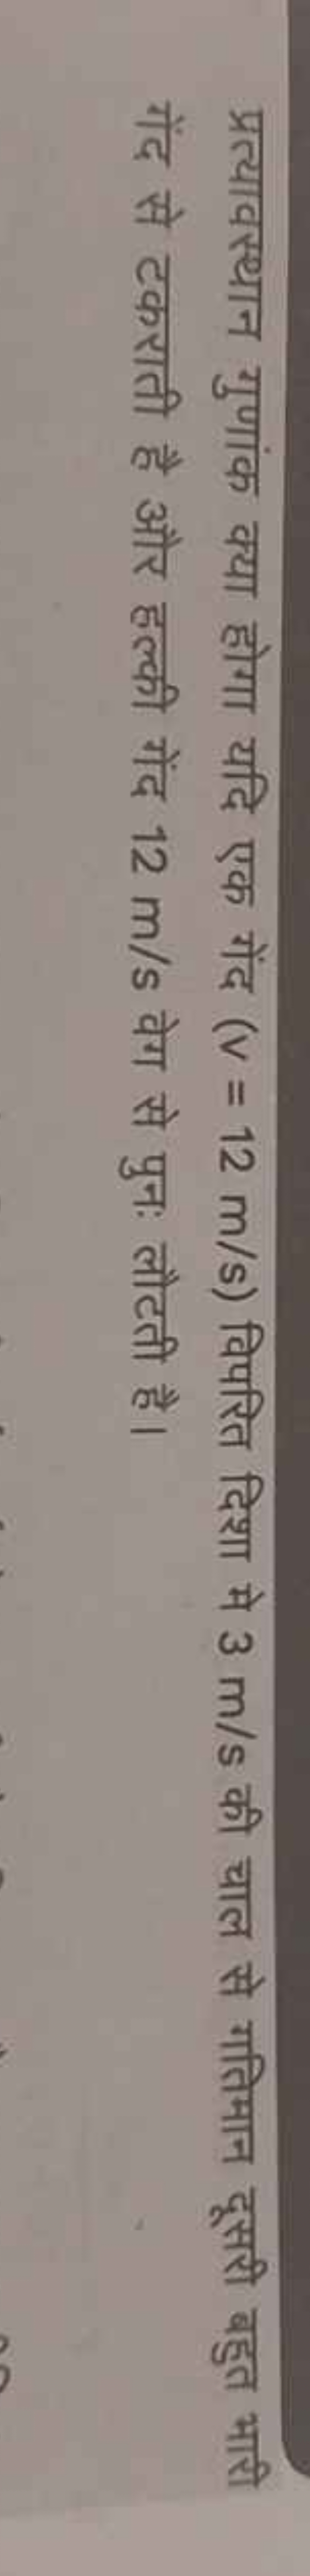 प्रत्यावस्थान गुणांक क्या होगा यदि एक गेंद (v = 12 m/s) विपरित दिशा मे 3 m/s की चाल से गतिमान दूसरी बहुत भारी
गेंद से टकराती है और हल्की गेंद 12 m/s वेग से पुनः लौटती है।